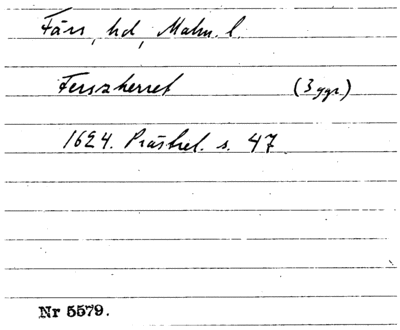 Färs, hd, Malm. l.
Ferszherret (3 ggr)
1624. Prästrel. s. 47
Nr 5579.